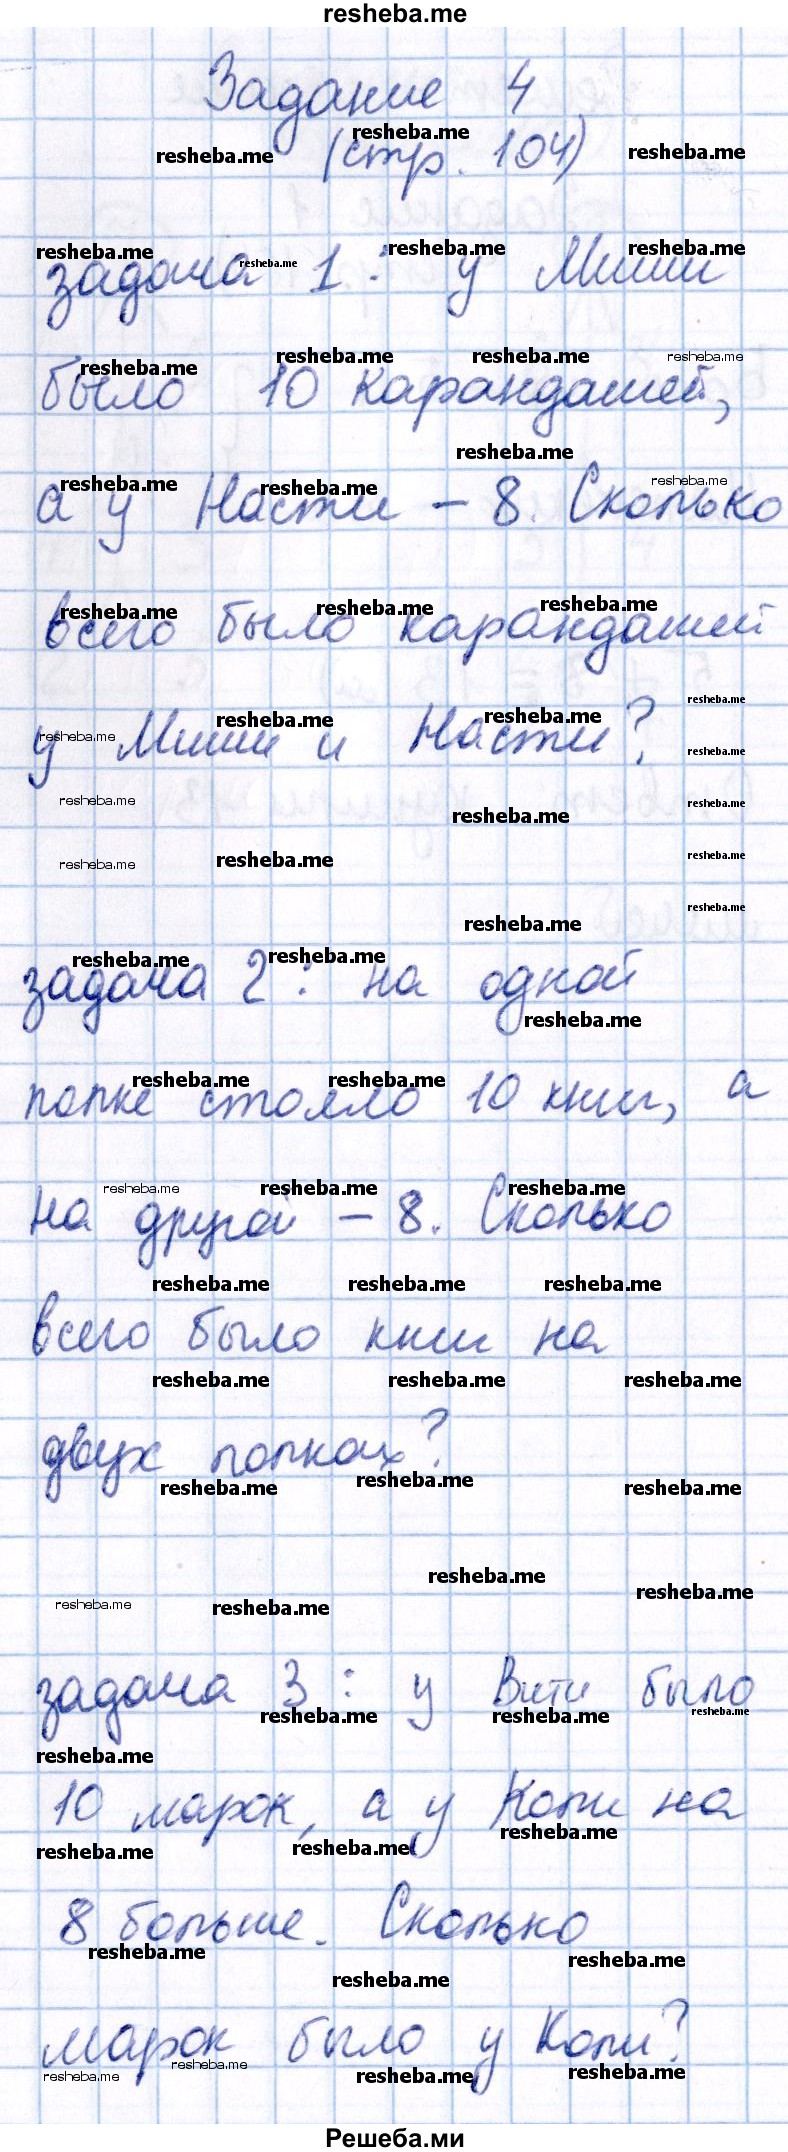 resheba.me
Задание 4
(стр. 104)
задача 1: у Миши
было 10 карандашей,
а у Насти – 8. Сколько
всего было карандашей
у Миши и Насти?
задача 2: на одной
полке стояло 10 книг, а
на другой – 8. Сколько
всего было книг на
двух полках?
задача 3: у Вити было
10 марок, а у Коли на
8 больше. Сколько
марок было у Коли?
Решеба.ми